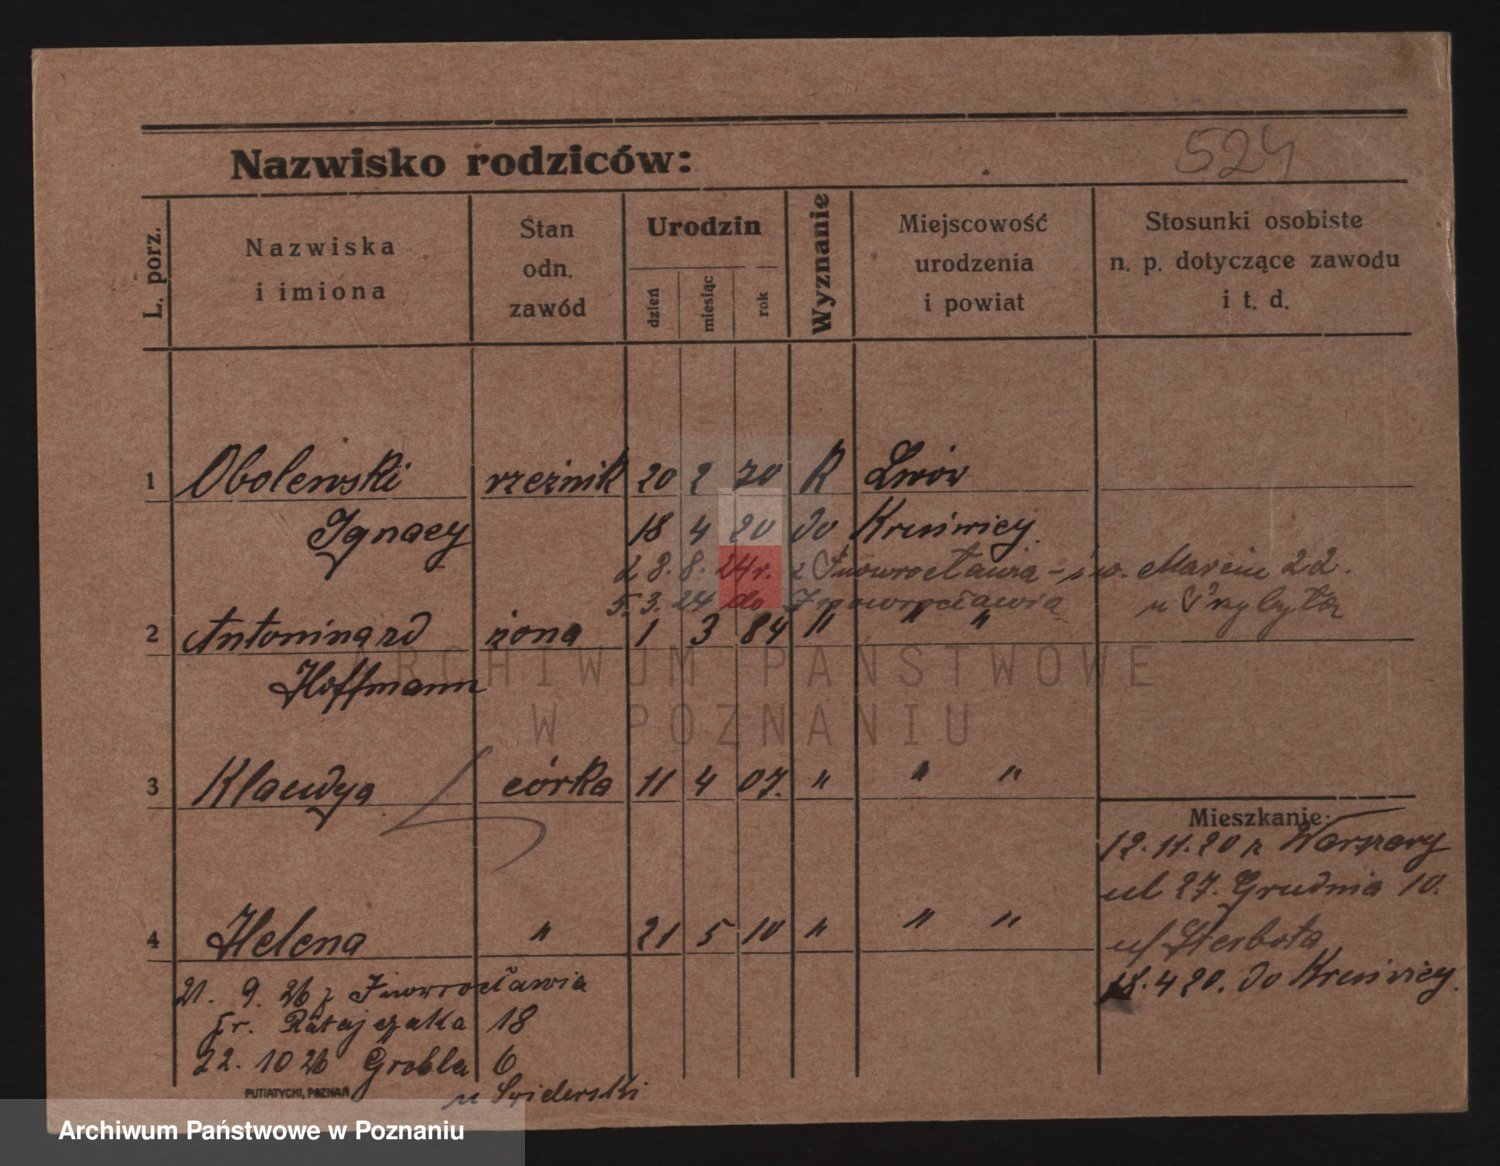 524
Nazwisko rodziców:
L. porz.
Nazwiska
i imiona
Stan
odn.
zawód
Urodzin
dzień
miesiąc
rok
Wyznanie
Miejscowość
urodzenia
i powiat
Stosunki osobiste
n. p. dotyczące zawodu
i t. d.
1 Obolewski rzeźnik 20 2 70 R Lwów
Ignacy 18 4 20 do Kruświcy.
z 8. 8. 24 r. z Inowrocławia - św. Marcin 22.
5. 3. 24 do Inowrocławia u Przybyła
2 Antonina zd żona 1 3 84 " " "
Hoffmann
3 Klaudya córka 11 4 07. " " "
Mieszkanie:
12. 11. 20 z Warszawy
ul 27. Grudnia 10.
4 Helena " 21 5 10 " " "
18. 4 20. do Kruświcy.
21. 9. 26 z Inowrocławia
Fr. Ratajczaka 18
22. 10 26 Grobla 6
u
PUTIATYCKI, POZNAŃ
ARCHIWUM PAŃSTWOWE
W POZNANIU
Archiwum Państwowe w Poznaniu